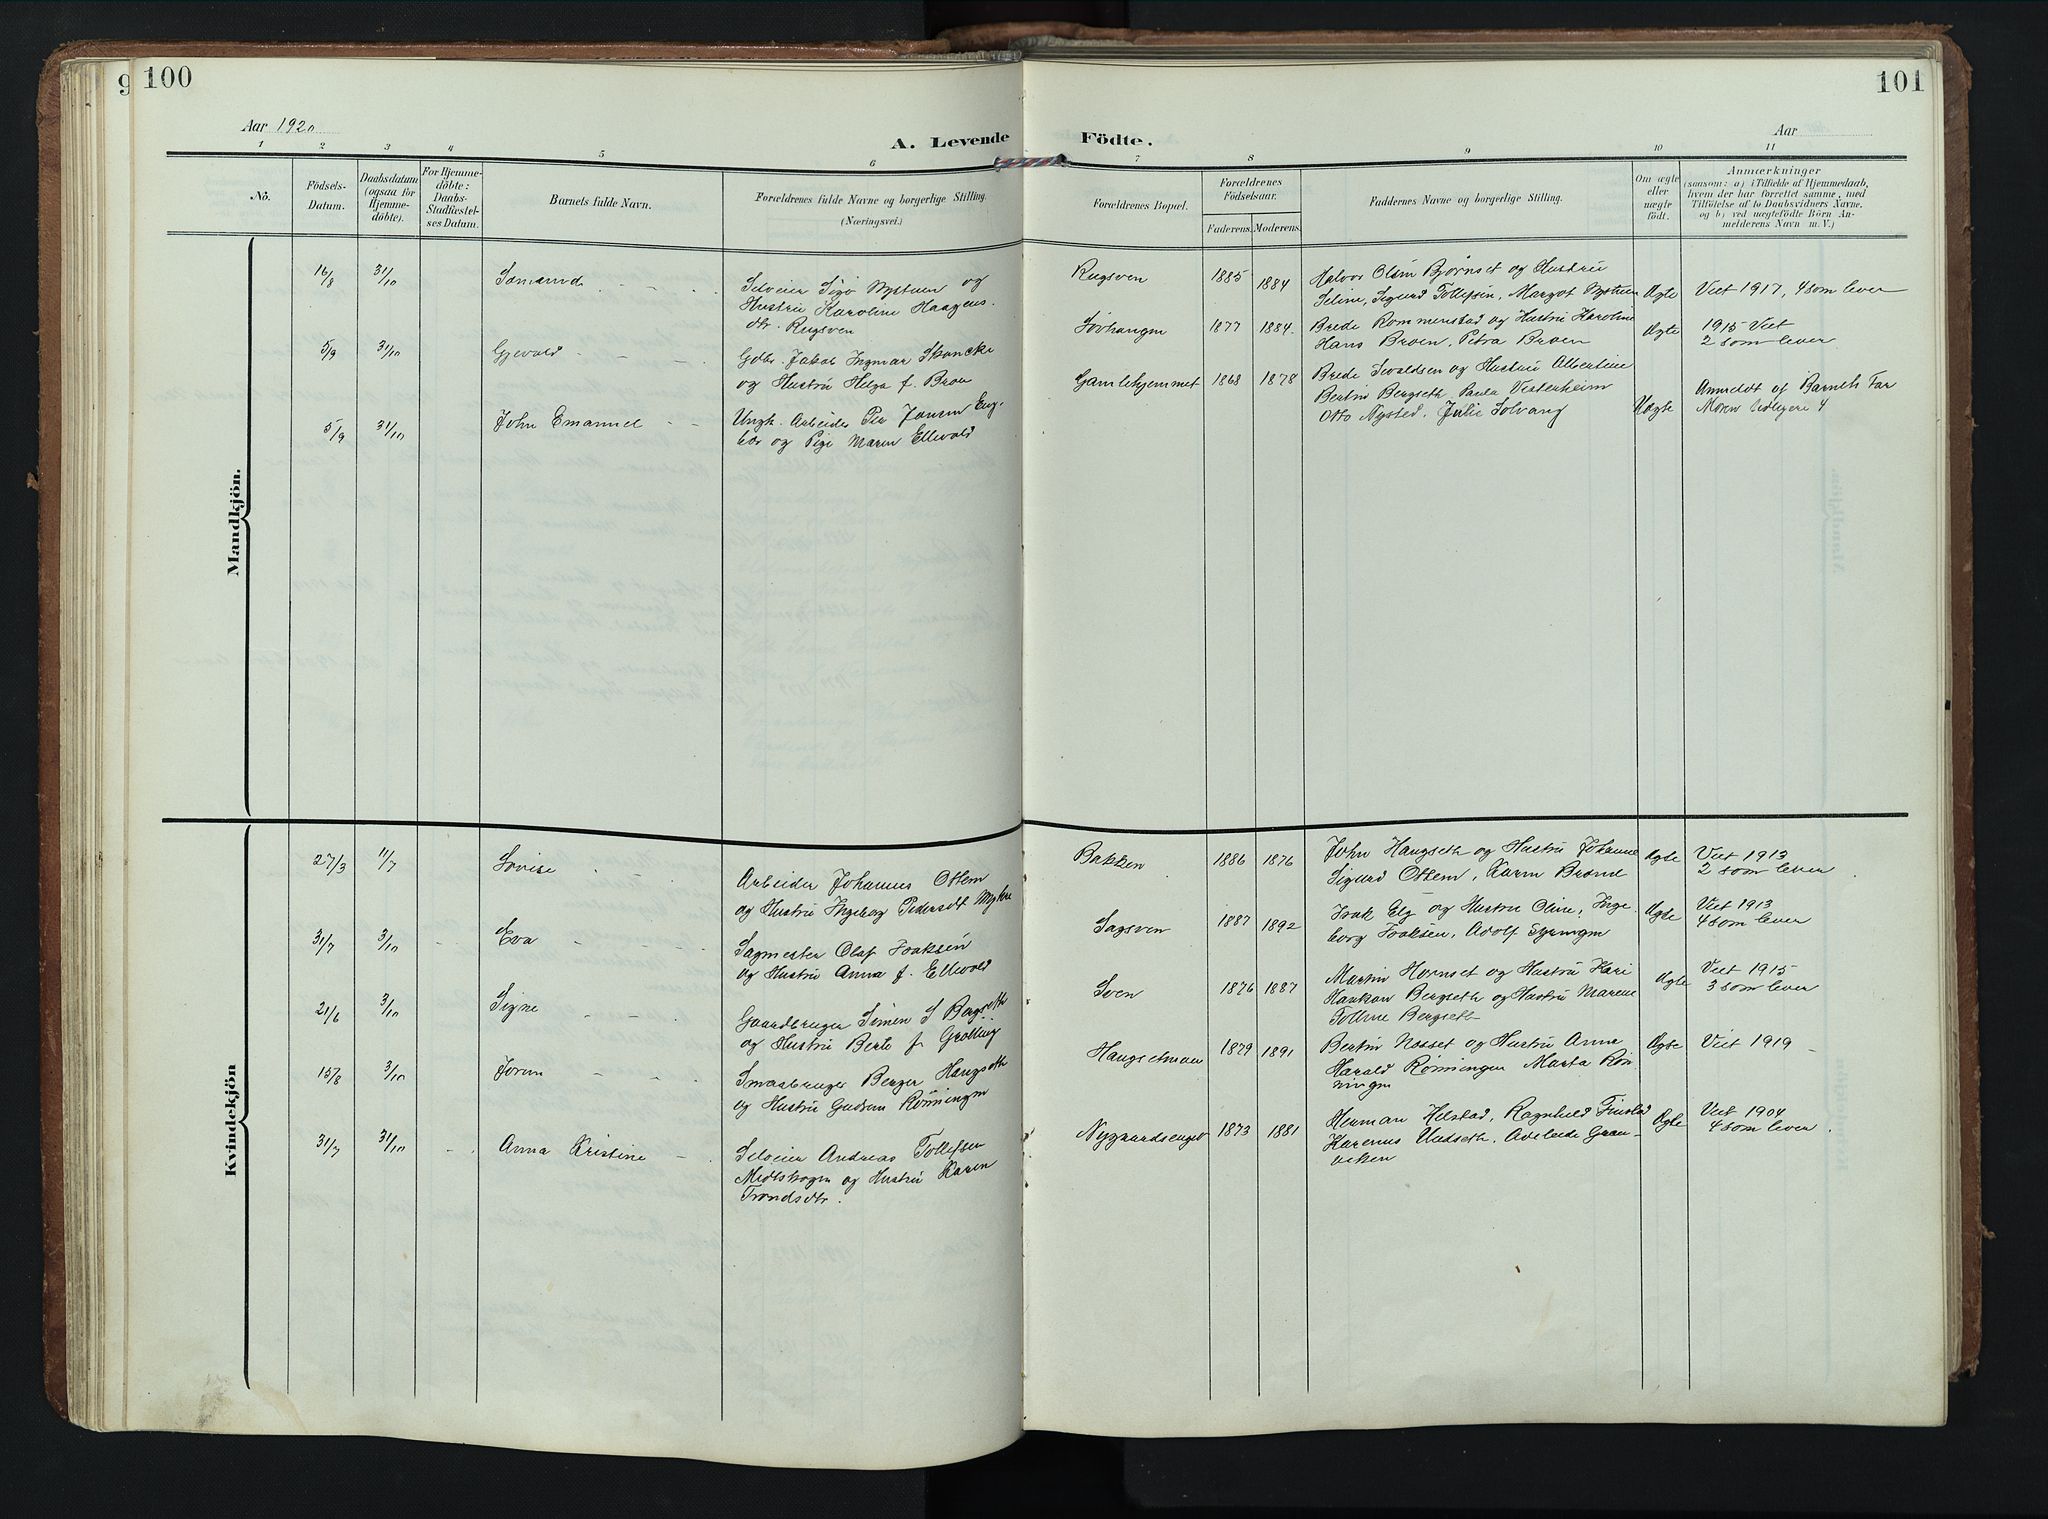 9
100
101
Aar 1920
A. Levende
Födte.
Aar
1
2
3
4
5
6
7
8
9
10
11
No.
Födsels-
Datum.
Daabsdatum
(ogsaa for
Hjemme-
döbte).
For Hjemme-
döbte:
Daabs-
Stadfæstel-
ses Datum.
Barnets fulde Navn.
Forældrenes fulde Navne og borgerlige Stilling.
(Næringsvei.)
Forældrenes Bopæl.
Forældrenes
Födselsaar.
Faderens.
Moderens.
Faddernes Navne og borgerlige Stilling.
Om ægte
eller
uægte
født.
Anmærkninger
(saasom: a) i Tilfælde af Hjemmedaab,
hvem der har forrettet samme, med
Tilföielse af to Daabsvidners Navne.
og b) ved uægtefödte Börn An-
melderens Navn m. V.)
Mandkjön.
16/8
31/10
Selveier Sigv Nystuen og
Hustru Karoline Haagens.
dtr. Rugsven
Rugsven
1885
1884
Halvor Olsen Bjørnset og Hustru
Seline, Sigurd Tollefsen, Margot Nystuen
Ægte
Viet 1917, 4 som lever
5/9
31/10
Gjevald
Gdbr. Jakob Ingmar Skancke
og Hustru Helga f. Broen
Søvhangen
1877
1884.
Brede Rommenstad og Hustru Karoline
Hans Broen, Petra Broen
Ægte
1915 Viet
2 som lever
5/9
31/10
John Emanuel
Ungk. Arbeider Per Jonsen Eng-
bær og Pige Maren Ellevold
Gamlehjemmet
1868
1878
Brede Sevaldsen og Hustru Albertine
Bertin Bergseth, Paula Vesterheim
Otto Nysted, Julie Solvang
Uægte
Anmeldt af Barnets Far
Moren tidligere 4
Kvindekjön
27/3
11/7
Lovise
Arbeider Johannes Ottem
og Hustru Ingebog Pedersdt Myhre
Bakken
1886
1876
John Haugseth og Hustru Johanne
Sigurd Ottem, Karen
Ægte
Viet 1913
2 som lever
31/7
3/10
Eva
Sagmester Olaf Isaksen
og Hustru Anna f. Ellevold
Sagsven
1887
1892
Isak Elg og Hustru Oline, Inge
borg Isaksen, Adolf Fyringen
Ægte
Viet 1913
4 som lever
21/6
3/10
Signe
Gaardbruger Simen S Bergseth
og Hustru Berte f Grøtting
Sven
1876
1887
Martin Hornset og Hustru Kari
Haakon Bergseth og Hustru Marene
Tolline Bergseth
Ægte
Viet 1915
3 som lever
15/8
3/10
Jorun
Smaabruger Berger Haugseth
og Hustru Gudrun Rønningen
Haugsetmoen
1879
1891
Bertin Nosset og Hustru Anna
Harald Rønningen Marta Røn
ningen
Ægte
Viet 1919
31/7
31/10
Anna Kristine
Selveier Andreas Tollefsen
Midtskogen og Hustru Karen
Trondsdtr.
Nygaardsenget
1873
1881
Herman Helstad, Ragnhild Finstad
Karenus Undseth, Adeleide Gran-
viken
Ægte
Viet 1904
4 som lever